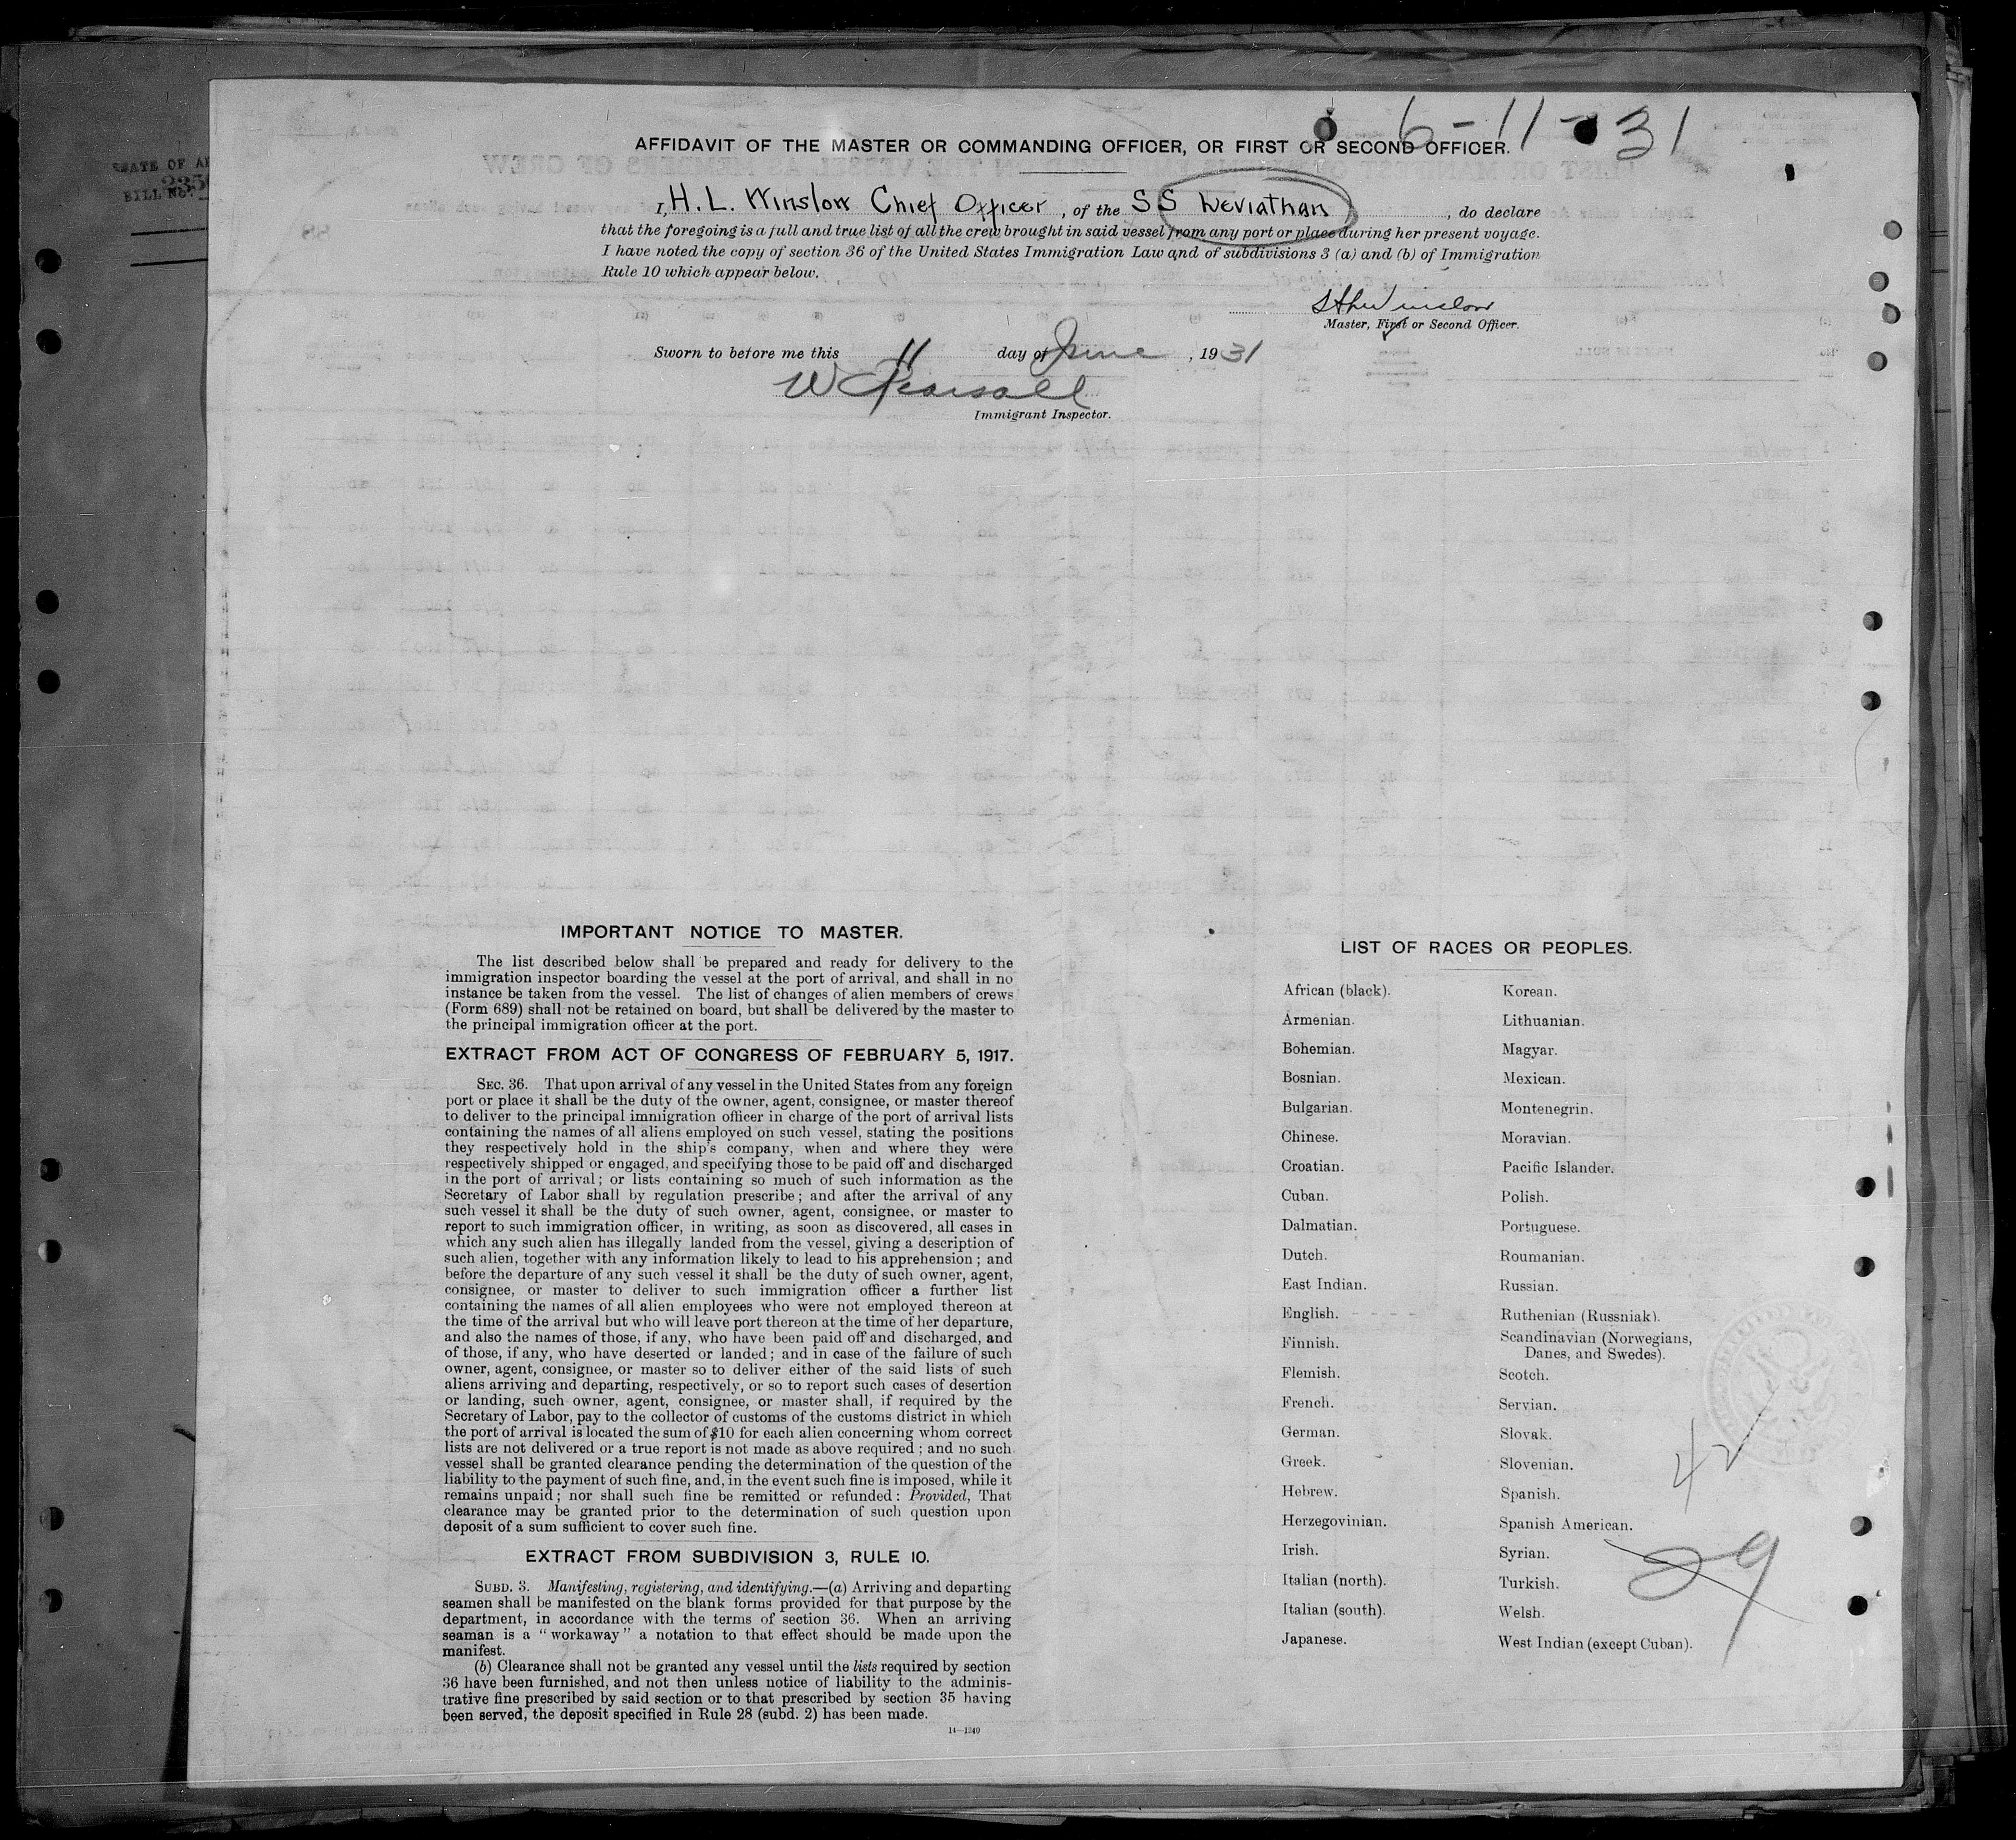 6-11-31
AFFIDAVIT OF THE MASTER OR COMMANDING OFFICER, OR FIRST OR SECOND OFFICER.
I, H. L. Winslow Chief Officer, of the SS Leviathan, do declare
that the foregoing is a full and true list of all the crew brought in said vessel from any port or place during her present voyage.
I have noted the copy of section 36 of the United States Immigration Law and of subdivisions 3 (a) and (b) of Immigration
Rule 10 which appear below.
H L Winslow
Master, First or Second Officer.
Sworn to before me this 11 day of June, 1931
W Pearsall
Immigrant Inspector.
BILL No.
IMPORTANT NOTICE TO MASTER.
The list described below shall be prepared and ready for delivery to the
immigration inspector boarding the vessel at the port of arrival, and shall in no
instance be taken from the vessel. The list of changes of alien members of crews
(Form 689) shall not be retained on board, but shall be delivered by the master to
the principal immigration officer at the port.
EXTRACT FROM ACT OF CONGRESS OF FEBRUARY 5, 1917.
SEC. 36. That upon arrival of any vessel in the United States from any foreign
port or place it shall be the duty of the owner, agent, consignee, or master thereof
to deliver to the principal immigration officer in charge of the port of arrival lists
containing the names of all aliens employed on such vessel, stating the positions
they respectively hold in the ship's company, when and where they were
respectively shipped or engaged, and specifying those to be paid off and discharged
in the port of arrival; or lists containing so much of such information as the
Secretary of Labor shall by regulation prescribe; and after the arrival of any
such vessel it shall be the duty of such owner, agent, consignee, or master to
report to such immigration officer, in writing, as soon as discovered, all cases in
which any such alien has illegally landed from the vessel, giving a description of
such alien, together with any information likely to lead to his apprehension; and
before the departure of any such vessel it shall be the duty of such owner, agent,
consignee, or master to deliver to such immigration officer a further list
containing the names of all alien employees who were not employed thereon at
the time of the arrival but who will leave port thereon at the time of her departure,
and also the names of those, if any, who have been paid off and discharged, and
of those, if any, who have deserted or landed; and in case of the failure of such
owner, agent, consignee, or master so to deliver either of the said lists of such
aliens arriving and departing, respectively, or so to report such cases of desertion
or landing, such owner, agent, consignee, or master shall, if required by the
Secretary of Labor, pay to the collector of customs of the customs district in which
the port of arrival is located the sum of $10 for each alien concerning whom correct
lists are not delivered or a true report is not made as above required; and no such
vessel shall be granted clearance pending the determination of the question of the
liability to the payment of such fine, and, in the event such fine is imposed, while it
remains unpaid; nor shall such fine be remitted or refunded: Provided, That
clearance may be granted prior to the determination of such question upon
deposit of a sum sufficient to cover such fine.
EXTRACT FROM SUBDIVISION 3, RULE 10.
SUBD. 3. Manifesting, registering, and identifying.—(a) Arriving and departing
seamen shall be manifested on the blank forms provided for that purpose by the
department, in accordance with the terms of section 36. When an arriving
seaman is a "workaway" a notation to that effect should be made upon the
manifest.
(b) Clearance shall not be granted any vessel until the lists required by section
36 have been furnished, and not then unless notice of liability to the adminis-
trative fine prescribed by said section or to that prescribed by section 35 having
been served, the deposit specified in Rule 28 (subd. 2) has been made.
14—1240
LIST OF RACES OR PEOPLES.
African (black).
Armenian.
Bohemian.
Bosnian.
Bulgarian.
Chinese.
Croatian.
Cuban.
Dalmatian.
Dutch.
East Indian.
English.
Finnish.
Flemish.
French.
German.
Greek.
Hebrew.
Herzegovinian.
Irish.
Italian (north).
Italian (south).
Japanese.
Korean.
Lithuanian.
Magyar.
Mexican.
Montenegrin.
Moravian.
Pacific Islander.
Polish.
Portuguese.
Roumanian.
Russian.
Ruthenian (Russniak).
Scandinavian (Norwegians,
Danes, and Swedes).
Scotch.
Servian.
Slovak.
Slovenian.
Spanish.
Spanish American.
Syrian.
Turkish.
Welsh.
West Indian (except Cuban).
42
29